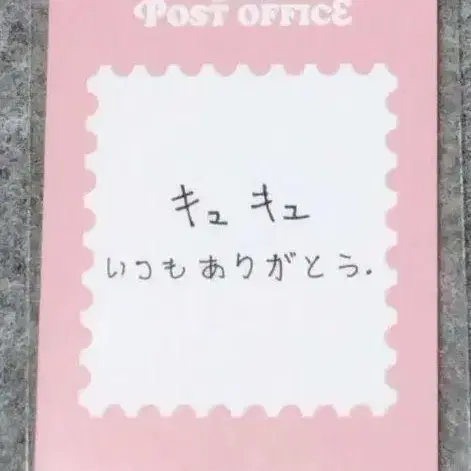 POST OFFICE
キュ キュ
いつもありがとう.